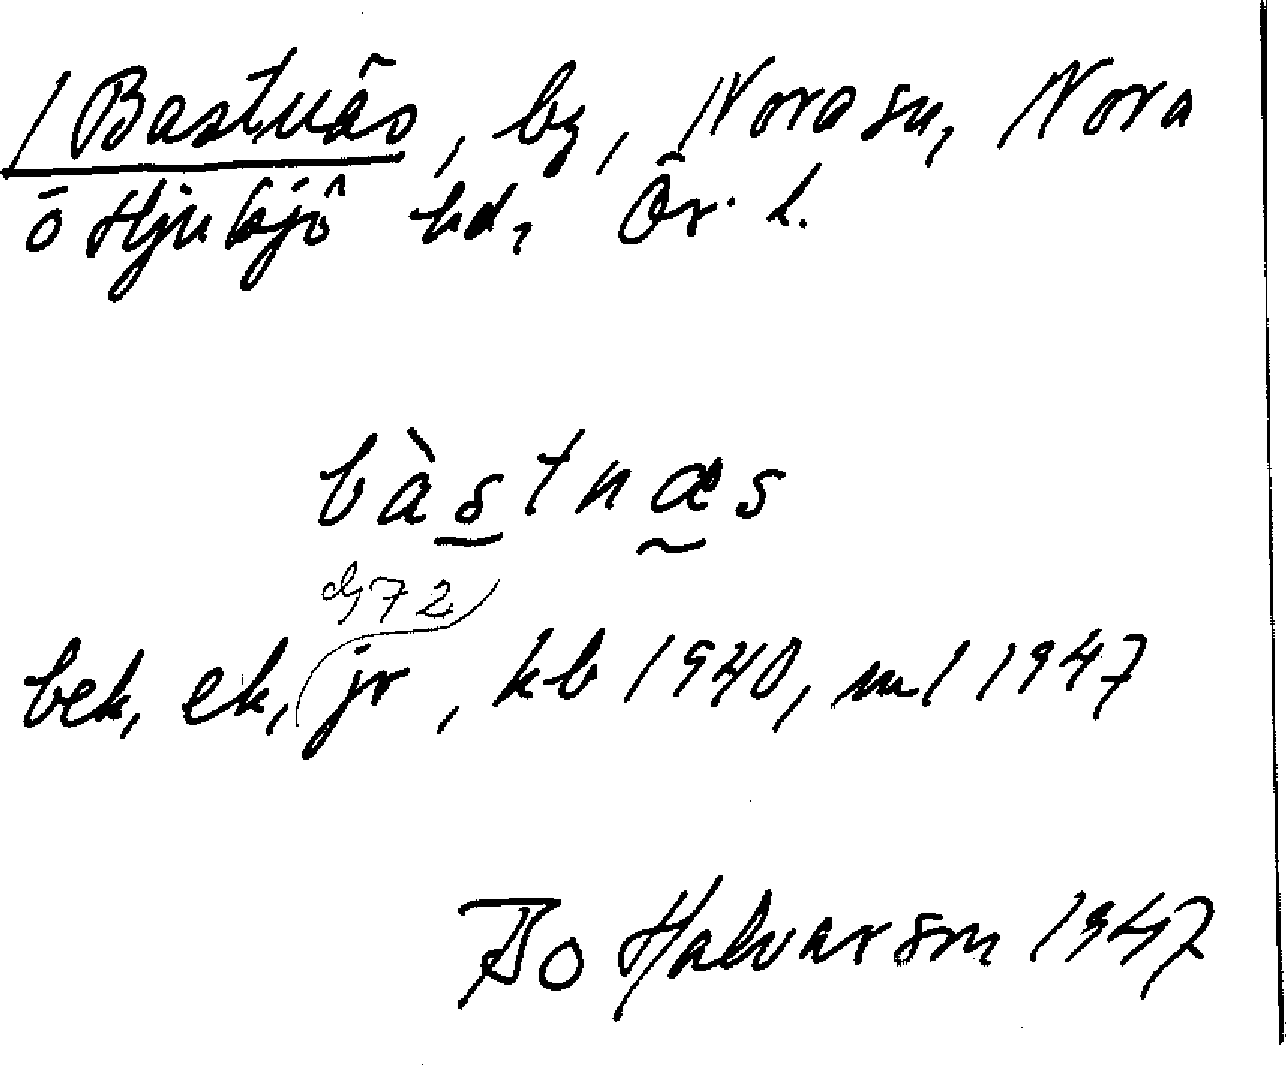 / Bastnäs, by, Nora sn, Nora
o Hjulsjö hd, Ör. l.
bàstnæs
dy 72
bek, ek, jr, kb 1940, ml 1947
Bo Halvarson 1947